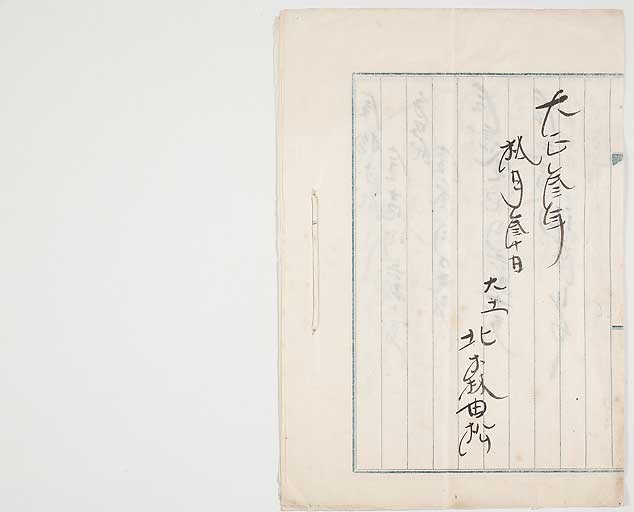 大正参年
捌月参十日
大工
北森由松